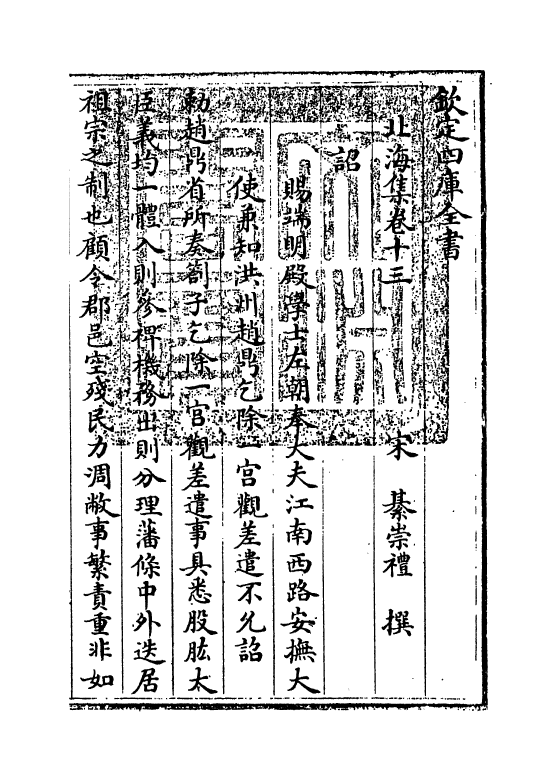 欽定四庫全書
北海集卷十三　宋　綦崇禮　撰
詔
賜端明殿學士左朝奉大夫江南西路安撫大
使兼知洪州趙鼎乞除一宮觀差遣不允詔
勅趙鼎省所奏劄子乞除一宮觀差遣事具悉股肱大
臣義均一體入則參裨機務出則分理藩條中外迭居
祖宗之制也顧今郡邑空殘民力凋敝事繁責重非如